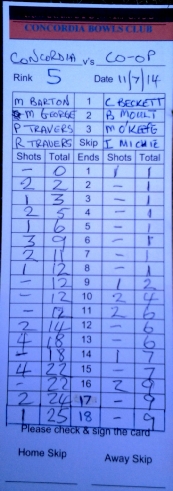 CONCORDIA BOWLS CLUB
CONCORDIA v's CO-OP
Rink 5 Date 11/7/14
M BARTON 1 C BECKETT
M GEORGE 2 B MOULT
P TRAVERS 3 M O'KEEFE
R TRAVERS Skip I MICHIE
Shots Total Ends Shots Total
- 0 1 1 1
2 2 2 - 1
1 3 3 - 1
2 5 4 - 1
1 6 5 - 1
3 9 6 - 1
2 11 7 - 1
1 12 8 - 1
- 12 9 1 2
- 12 10 2 4
- 12 11 2 6
2 14 12 - 6
4 18 13 - 6
- 18 14 1 7
4 22 15 - 7
- 22 16 2 9
2 24 17 - 9
1 25 18 - 9
Please check & sign the card
Home Skip Away Skip